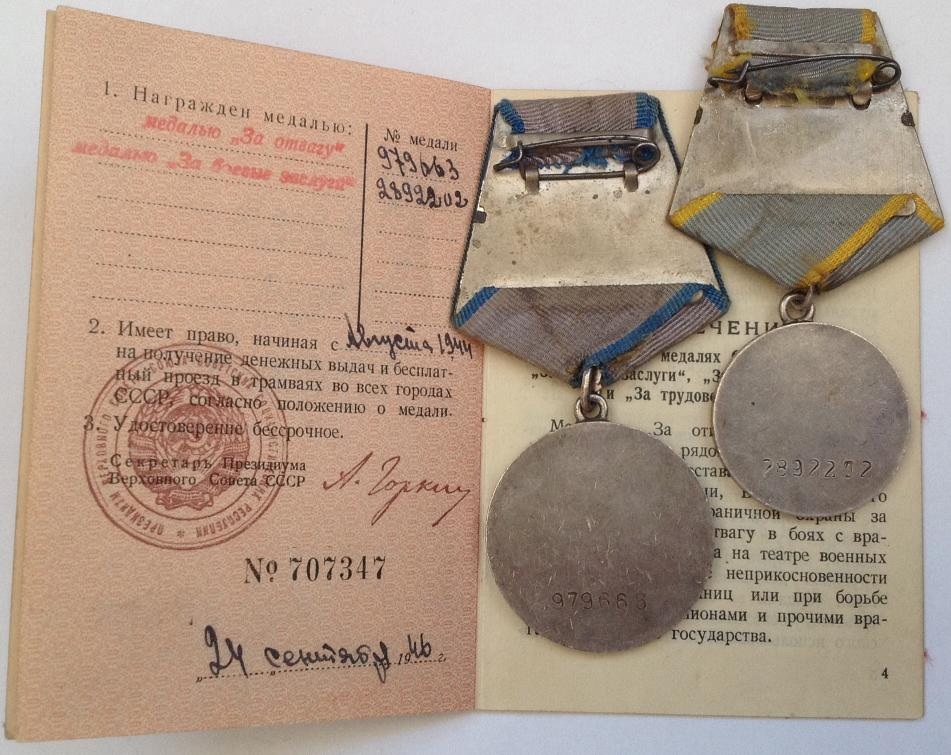 1. Награжден медалью:
медалью „За отвагу“
медалью „За боевые заслуги“
№ медали
979663
2892202
2. Имеет право, начиная с Августа 1944
на получение денежных выдач и бесплат-
ный проезд в трамваях во всех городах
СССР, согласно положению о медали.
3. Удостоверение бессрочное.
Секретарь Президиума
Верховного Совета СССР
А. Горкин
№ 707347
„24 сентября 1946 г.
ЕЧЕНИ
медалях
заслуги“, „З
и „За трудов
За отв
рядо
ста
го
раничной охраны за
твагу в боях с вра-
а на театре военных
неприкосновенности
ниц или при борьбе
пионами и прочими вра-
государства.
4
979663
2892202